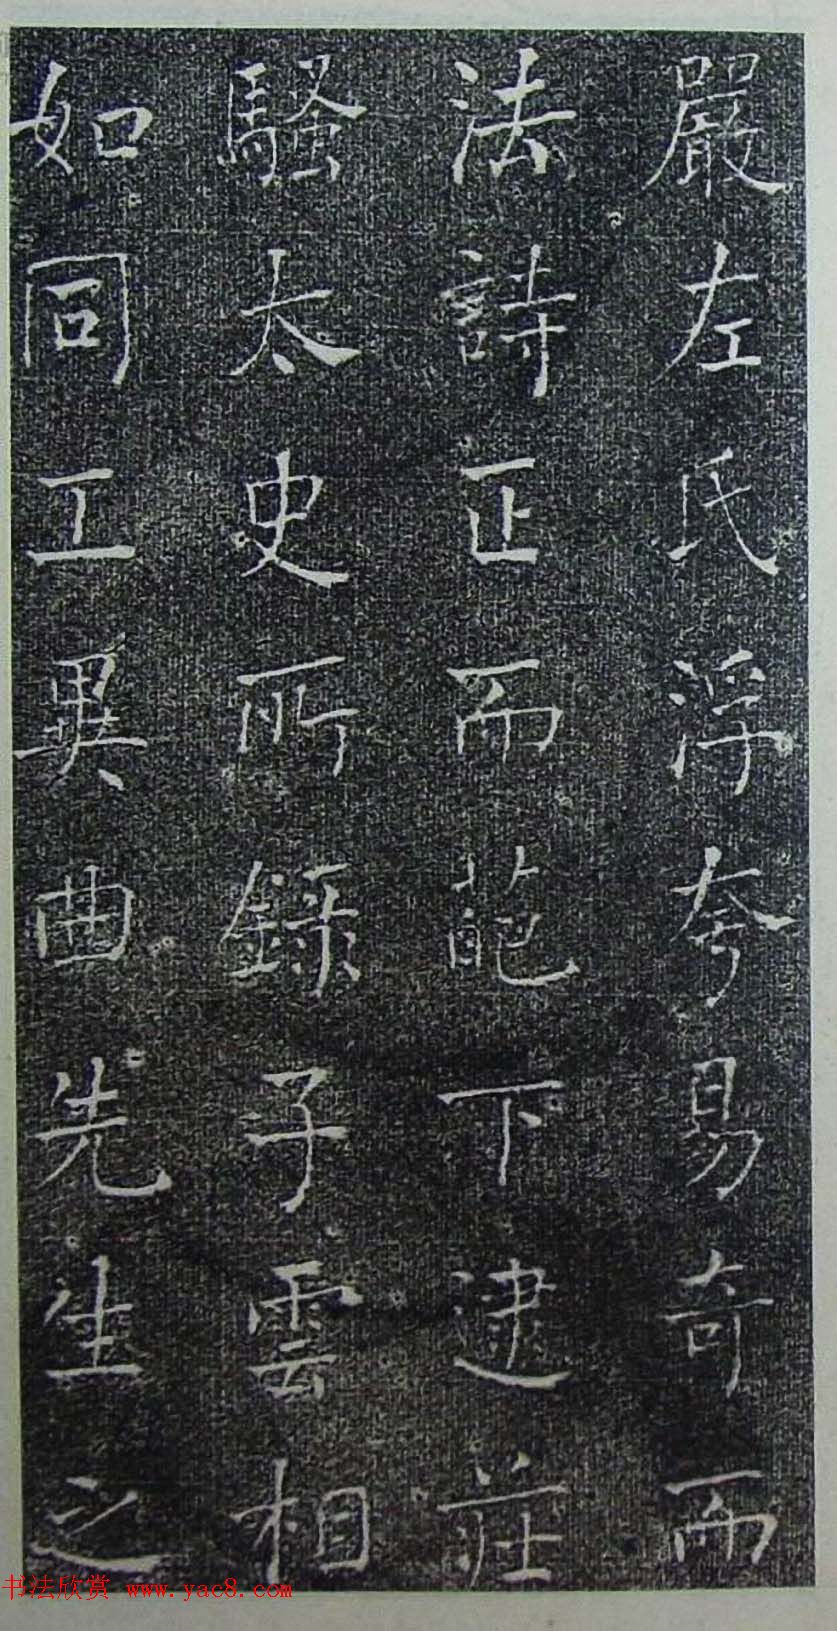 嚴左氏浮夸易奇而
法詩正而葩下逮莊
騷太史所錄子雲相
如同工異曲先生之
书法欣赏 www.yac8.com